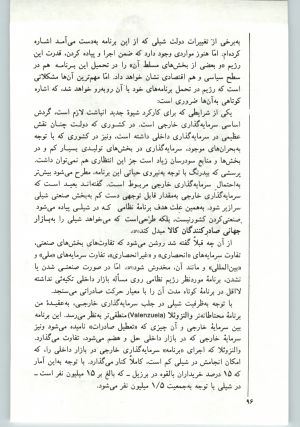 به‌برخی از تغییرات دولت شیلی که از این برنامه به‌دست می‌آمد اشاره
کرده‌ام. امّا هنوز مواردی وجود دارد که ضمن اجرا و پیاده کردن، قدرت این
رژیم و «بعضی از بخش‌های مسلط آن» را در تحمیل این برنامه هم در
سطح سیاسی و هم اقتصادی نشان خواهد داد. امّا مهم‌ترین آن‌ها مشکلاتی
است که رژیم در تحمل برنامه‌های خود با آن روبه‌رو خواهد شد، که اشاره
کوتاهی به‌آن‌ها ضروری است:
یکی از شرایطی که برای کارکرد شیوهٔ جدید انباشت لازم است، گردش
اساسی سرمایه‌گذاری خارجی است. در کشوری که دولت چنان نقش
عظیمی در سرمایه‌گذاری داخلی داشته است، ونیز در کشوری که با توجه
به‌بحران‌های موجود، سرمایه‌گذاری در بخش‌های تولیدی بسیار کم و در
بخش‌ها و منابع سودرسان زیاد است جز این انتظاری هم نمی‌توان داشت.
پرسشی که بیدرنگ با توجه به‌نیروی حیاتی این برنامه، مطرح می‌شود بیش‌تر
به‌احتمال سرمایه‌گذاری خارجی مربوط است. گفته‌اند بعید است که
سرمایه‌گذاری خارجی به‌مقدار قابل توجهی دست کم به‌بخش صنعتی شیلی
سرازیر شود. به‌همین علت هدف برنامهٔ نظامی که در شیلی پیاده می‌شود
صنعتی‌کردن کشور نیست، بلکه طرحی است که می‌خواهد شیلی را به‌بازار
جهانی صادرکنندگان کالا مبدل کند.
از آن چه قبلاً گفته شد روشن می‌شود که تفاوت‌های بخش‌های صنعتی،
تفاوت سرمایه‌های «انحصاری» و «غیرانحصاری»، تفاوت سرمایه‌های «ملی» و
«بین‌المللی» و مانند آن، مخدوش شود، امّا در صورت صنعتی شدن یا
نشدن، برنامهٔ موردنظر رژیم نظامی روی مسأله بازار داخلی تکیه‌یی نداشته
لااقل در برنامهٔ کوتاه مدت آن را با معیار حرکت صادراتی می‌سنجد.
با توجه به‌ظرفیت شیلی در جلب سرمایه‌گذاری خارجی، به‌عقیدهٔ من
برنامهٔ محتاطانه‌تر والنزوئلا (Valenzuela) منطقی‌تر به‌نظر می‌رسد. این برنامه
بین سرمایهٔ خارجی و آن چیزی که «تعطیل صادرات» نامیده می‌شود ونیز
سرمایهٔ خارجی که در بازار داخلی حل و هضم می‌شود، تفاوت می‌گذارد.
والنزوئلا که اجرای «برنامه» سرمایه‌گذاری خارجی در بازار داخلی را، که
امکان انجامش در شیلی کم است، کاملاً کنار می‌گذارد. با توجه به‌این آمار
که ۱۵ درصد خریداران بالقوه در برزیل ـ که بالغ بر ۱۵ میلیون نفر است ـ
در شیلی با توجه به‌جمعیت ۱/۵ میلیون نفر می‌شود.
۹۶